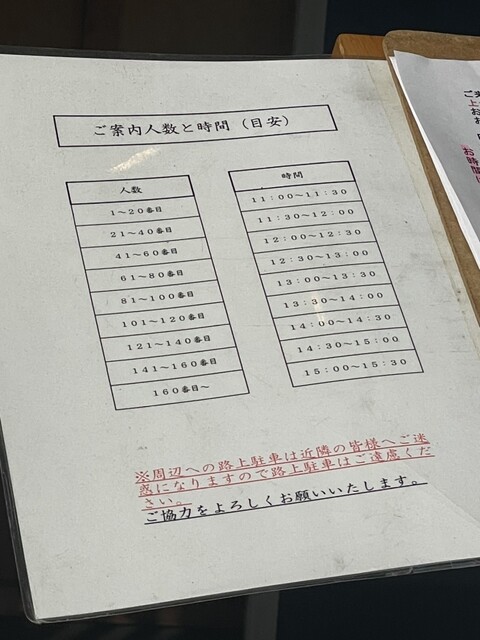 ご案内人数と時間（目安）
人数
1～20番目
21～40番目
41～60番目
61～80番目
81～100番目
101～120番目
121～140番目
141～160番目
160番目～
時間
11：00～11：30
11：30～12：00
12：00～12：30
12：30～13：00
13：00～13：30
13：30～14：00
14：00～14：30
14：30～15：00
15：00～15：30
※周辺への路上駐車は近隣の皆様へご迷
惑になりますので路上駐車はご遠慮くだ
さい。
ご協力をよろしくお願いいたします。
お時間